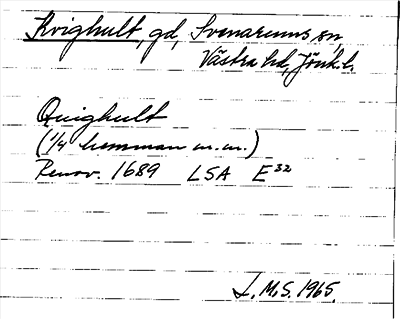 Kvighult, gd, Svenarums sn,
Västra hd, Jönk.l.
Quighult
(1/4 hemman m.m.)
Renov. 1689 LSA E32
L.M.S. 1965.